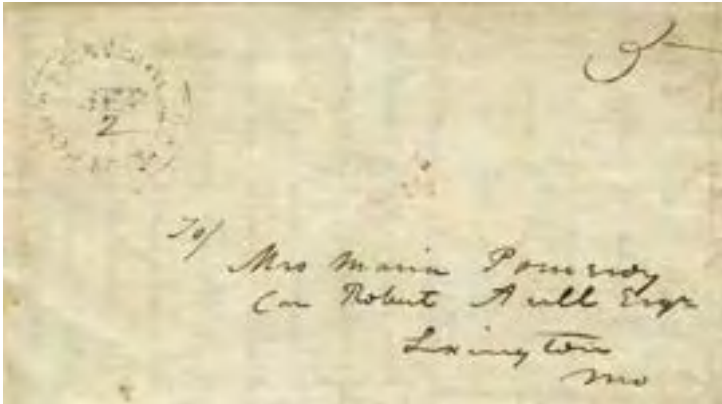 5
2
To/
Mrs Maria Pomeroy
Car Robert Aull Esqr
Lexington
Mo